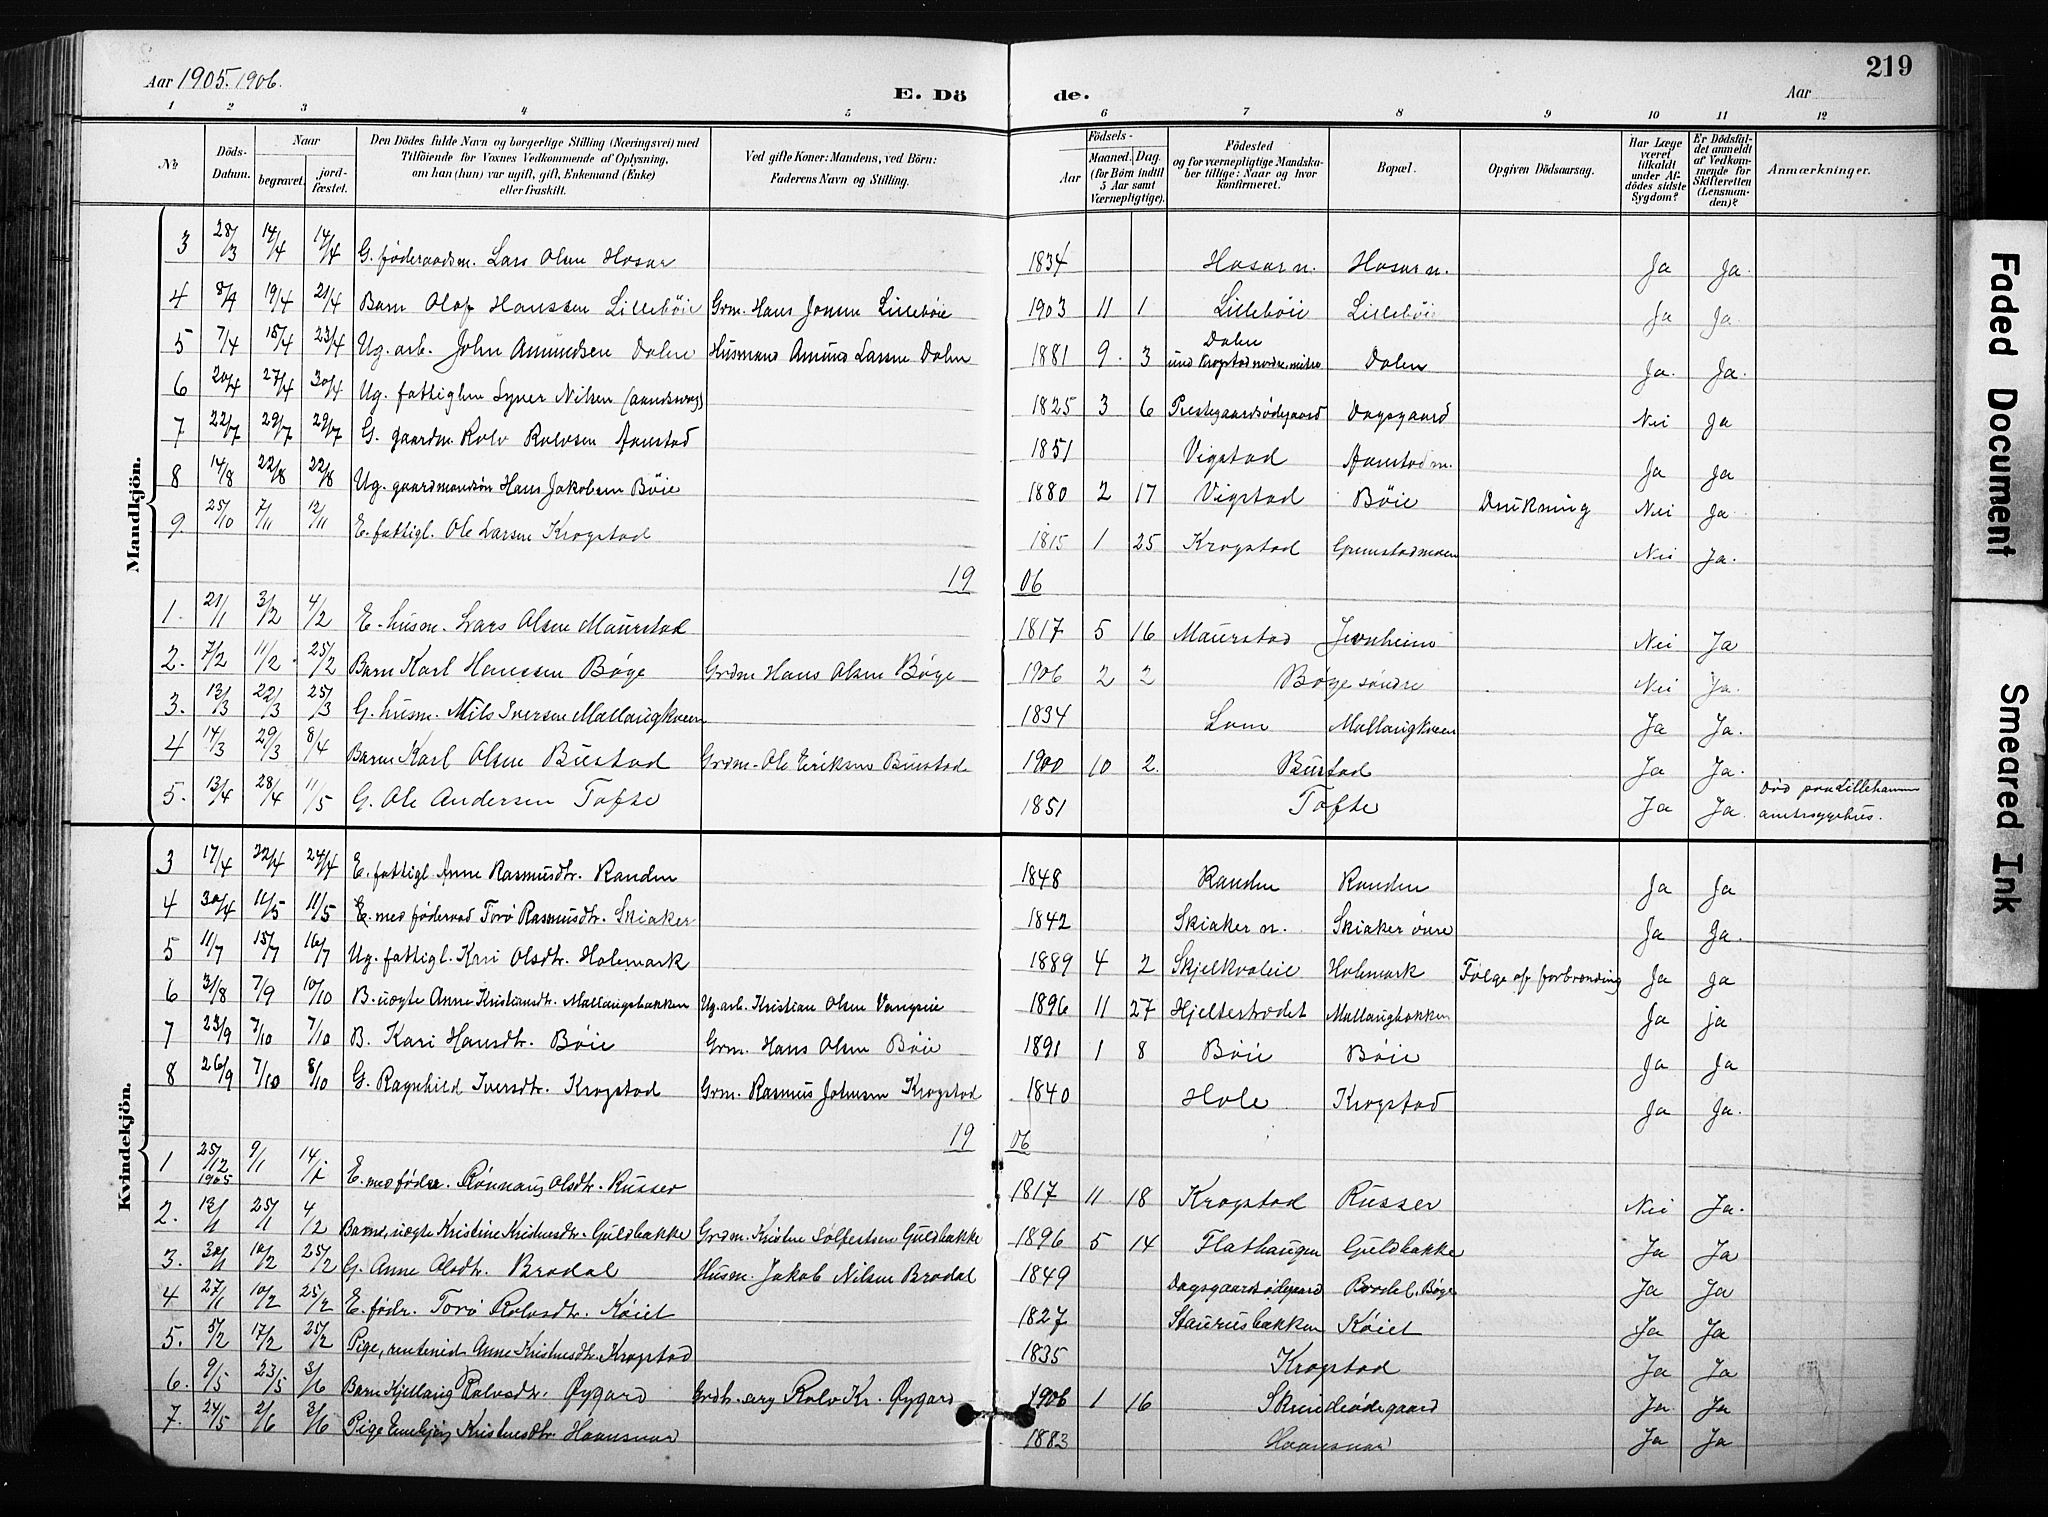 Aar 1905. 1906.
E. Dö de.
Aar
219
1 2 3 4 5 6 7 8 9 10 11 12
No
Döds-Datum.
Naar
begravet.
jord-fæstet.
Den Dödes fulde Navn og borgerlige Stilling (Næringsvei) med
Tilföiende for Voxnes Vedkommende af Oplysning,
om han (hun) var ugift, gift, Enkemand (Enke)
eller fraskilt.
Ved gifte Koner: Mandens, ved Börn:
Faderens Navn og Stilling.
Födsels-
Aar
Maaned. Dag.
(for Börn indtil
5 Aar samt
Værnepligtige).
Födested
og for værnepligtige Mandska-
ber tillige: Naar og hvor
konfirmeret.
Bopæl.
Opgiven Dödsaarsag.
Har Læge
været
tilkaldt
under Af-
dödes sidste
Sygdom?
Er Dödsfal-
det anmeldt
af Vedkom-
mende for
Skifteretten
(Lensman-
den)?
Anmærkninger.
Mandkjön.
3 28/3 14/4 14/4 G. føderaadsm. Lars Olsen Hosar 1834 Hosar n. Hosar n. Ja Ja.
4 8/4 19/4 21/4 Barn Olaf Hanssen Lillebøie Grm. Hans Jonsen Lillebøie 1903 11 1 Lillebøie Lillebøie Ja Ja.
5 7/4 15/4 23/4 Ug. arb. John Amundsen Dalen Husmand Amund Larsen Dalen 1881 9. 3 Dalen und Krogstad nordre Dalen Ja. Ja.
6 20/4 27/4 30/4 Ug. fattiglem Syver Nilsen (aandssvag) 1825 3 6 Prestegaardsødegaard Dagsgaard Nei Ja
7 22/7 29/7 29/7 G. gaardm. Rolv Rolvsen Aanstad 1851 Vigstad Aanstad n. Ja Ja
8 14/8 22/8 22/8 Ug. gaardmandsøn Hans Jakobsen Bøie 1880 2 17 Vigstad Bøie Drukning Nei Ja
9. 25/10 7/11 12/11 E. fattigl. Ole Larsen Krogstad 1815 1 25 Krogstad Grimstadmoen Nei Ja.
1906
1. 21/1 3/2 4/2 E. husm. Lars Olsen Maurstad 1817 5 16 Maurstad Jevnheim Nei Ja
2. 7/2 11/2. 25/2 Barn Karl Hanssen Bøge Grdm Hans Olsen Bøge 1906 2 2 Bøge søndre Nei Ja.
3. 13/3 22/3 25/3 G. husm. Nils Iversen Mallaugkveen 1834 Lom Mallaugkveen Ja Ja.
4 14/3 29/3 8/4 Barn Karl Olsen Bustad Grdm. Ole Eriksen Bustad 1900 10 2. Bustad Ja Ja.
5. 13/4 28/4 11/5 G. Ole Andersen Tofte 1851 Tofte Ja Ja. Død paa Lillehammer amtssygehus.
Kvindekjön.
3 17/4 22/4 24/4 E. fattigl Anne Rasmusdtr. Randen 1848 Randen Randen Ja Ja
4 30/4 11/5 11/5 E. med føderaad Torø Rasmusdtr. Skiaker 1842 Skiaker n. Skiaker øvre Ja Ja.
5 11/7 15/7 16/7 Ug. fattigl. Kari Olsdtr. Holemark 1889 4 2 Skjelkvaleie Holemark Følge af forbrænding Ja Ja
6 31/8 7/9 10/10 B. uegte Anne Kristiansdtr. Mallaugsbakken Ug. arb. Kristian Olsen Vangseie 1896 11 27 Hjelterbødet Mallaugbakken Ja ja
7 23/9 7/10 7/10 B. Kari Hansdtr. Bøie Grm. Hans Olsen Bøie 1891 1 8 Bøie Bøie Ja Ja
8 26/9 7/10 8/10 G. Ragnhild Iversdtr. Krogstad Grm. Rasmus Johnsen Krogstad 1840 Hole Krogstad Ja Ja.
1906
1 25/12 1905 9/1 14/1 E. med føder. Rønnaug Olsdtr. Russer 1817 11 18 Krogstad Russer Nei Ja.
2. 13/1 25/1 4/2 Barn, uegte Kristine Kristensdtr. Guldbakke Grdm. Kristen Solfestsen Guldbakke 1896 5 14 Flathaugen Guldbakke Ja Ja
3. 30/1 10/2 25/2 G. Anne Olsdtr. Brodal Husm. Jakob Nilsen Brodal 1849 Dagsgaardsødegaard Brodal, Bøge Ja Ja
4 27/1 10/2 25/2 E. fødr. Torø Rolvsdtr. Køiet 1827 Staurusbakken Køiet Ja Ja
5. 5/2 17/2 25/2 Pige, Anne Kristensdtr. Krogstad 1835 Krogstad Ja Ja
6. 9/5 23/5 3/6 Barn Kjellaug Rolvsdtr. Øygard Rolv Kr. Øygard 1906 1 16 Skrindeødegaard Ja Ja
7. 24/5 2/6 3/6 Pige Kristensdtr. Haansnar 1883 Haansnar Ja Ja
Faded Document
Smeared Ink